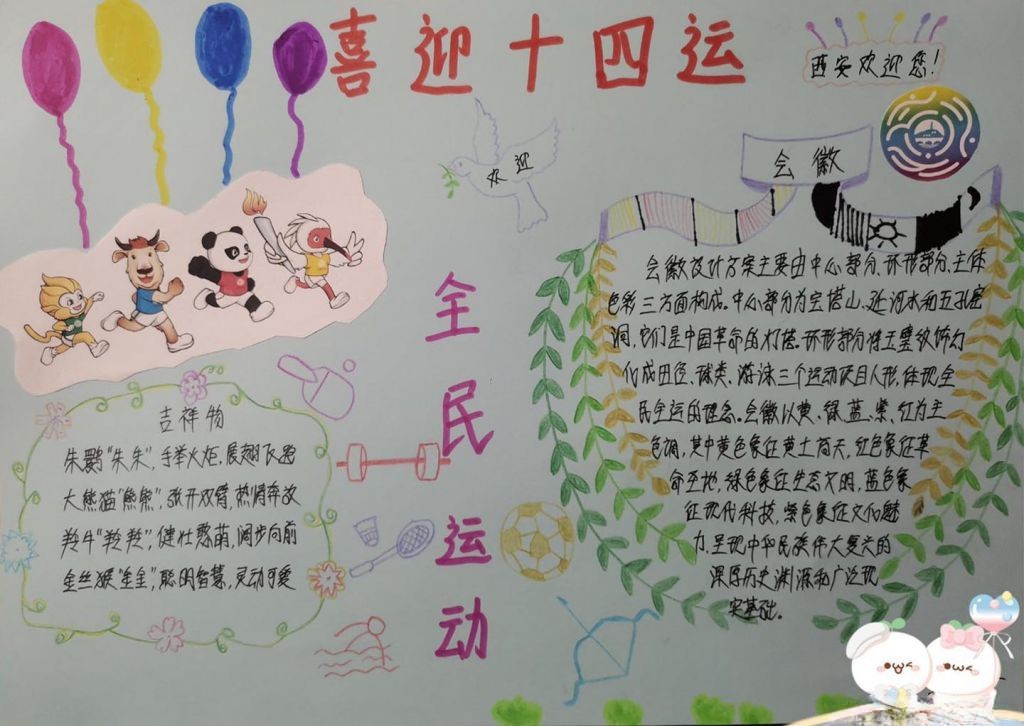 喜迎十四运
西安欢迎您!
欢迎
会徽
会徽设计方案主要由中心部分、环形部分、主体
色彩三方面构成。中心部分为宝塔山、延河水和五孔窑
洞,它们是中国革命的灯塔。环形部分将玉璧纹饰幻
化成田径、球类、游泳三个运动项目人形,体现全
民全运的理念。会徽以黄、绿、蓝、紫、红为主
色调,其中黄色象征黄土高天,红色象征革
命圣地,绿色象征生态文明,蓝色象
征现代科技,紫色象征文化魅
力,呈现中华民族伟大复兴的
深厚历史渊源和广泛现
实基础。
全民运动
吉祥物
朱鹮"朱朱",手举火炬,展翅飞跑
大熊猫"熊熊",张开双臂,热情奔放
羚牛"羚羚",健壮憨萌,阔步向前
金丝猴"金金",聪明智慧,灵动可爱